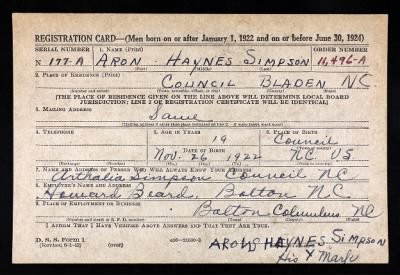 REGISTRATION CARD—(Men born on or after January 1, 1922 and on or before June 30, 1924)
SERIAL NUMBER 1. NAME (Print) ORDER NUMBER
N 177-A ARON HAYNES SIMPSON 11,496-A
(First) (Middle) (Last)
2. PLACE OF RESIDENCE (Print)
COUNCIL BLADEN NC
(Number and street) (Town, township, village, or city) (County) (State)
[THE PLACE OF RESIDENCE GIVEN ON THE LINE ABOVE WILL DETERMINE LOCAL BOARD
JURISDICTION; LINE 2 OF REGISTRATION CERTIFICATE WILL BE IDENTICAL]
3. MAILING ADDRESS
Same
4. TELEPHONE 5. AGE IN YEARS 6. PLACE OF BIRTH
19 Council
DATE OF BIRTH (Town or county)
Nov. 26 1922 N.C. US.
(Exchange) (Number) (Mo.) (Day) (Yr.) (State or country)
7. NAME AND ADDRESS OF PERSON WHO WILL ALWAYS KNOW YOUR ADDRESS
Simpson Council NC
8. EMPLOYER'S NAME AND ADDRESS
Howard Beard, Bolton N.C.
9. PLACE OF EMPLOYMENT OR BUSINESS
Bolton Columbus NC
(Number and street or R. F. D. number) (Town) (County) (State)
I AFFIRM THAT I HAVE VERIFIED ABOVE ANSWERS AND THAT THEY ARE TRUE.
D. S. S. Form 1
(Revised 6-9-42)
ARON HAYNES SIMPSON
His X Mark